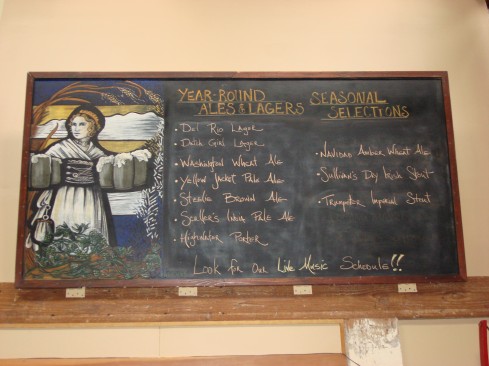 YEAR-ROUND
ALES & LAGERS
SEASONAL
SELECTIONS
• Del Rio Lager
• Dutch Girl Lager
• Washington Wheat Ale
• Yellow Jacket Pale Ale
• Steelie Brown Ale
• Spiller's India Pale Ale
• Highwater Porter
• Navidad Amber Wheat Ale
• Sullivan's Day Irish Stout
• Trumpeter Imperial Stout
Look for Our Live Music Schedule!!